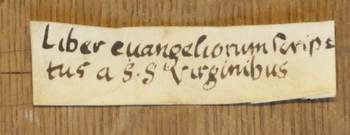 Liber euangeliorum scrip=
tus a S. S Virginibus